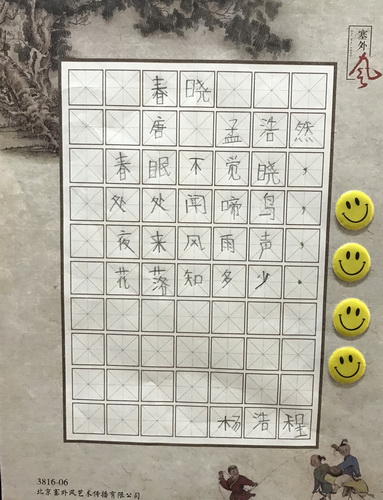 塞外风
春晓
唐 孟浩然
春眠不觉晓，
处处闻啼鸟，
夜来风雨声，
花落知多少。
杨浩程
3816-06
北京塞外风艺术传播有限公司